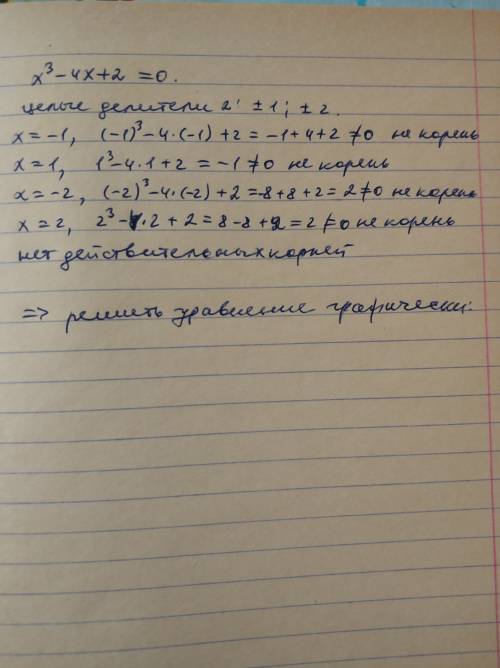 x³ - 4x + 2 = 0.
целые делители 2: ± 1; ± 2.
x = -1, (-1)³ - 4·(-1) + 2 = -1 + 4 + 2 ≠ 0 не корень
x = 1, 1³ - 4·1 + 2 = -1 ≠ 0 не корень
x = -2, (-2)³ - 4·(-2) + 2 = -8 + 8 + 2 = 2 ≠ 0 не корень
x = 2, 2³ - 4·2 + 2 = 8 - 8 + 2 = 2 ≠ 0 не корень
нет действительных корней
=> решить уравнение графически.